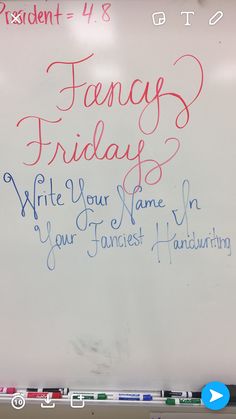 President = 4.8
Fancy
Friday
Write Your Name In
Your Fanciest Handwriting